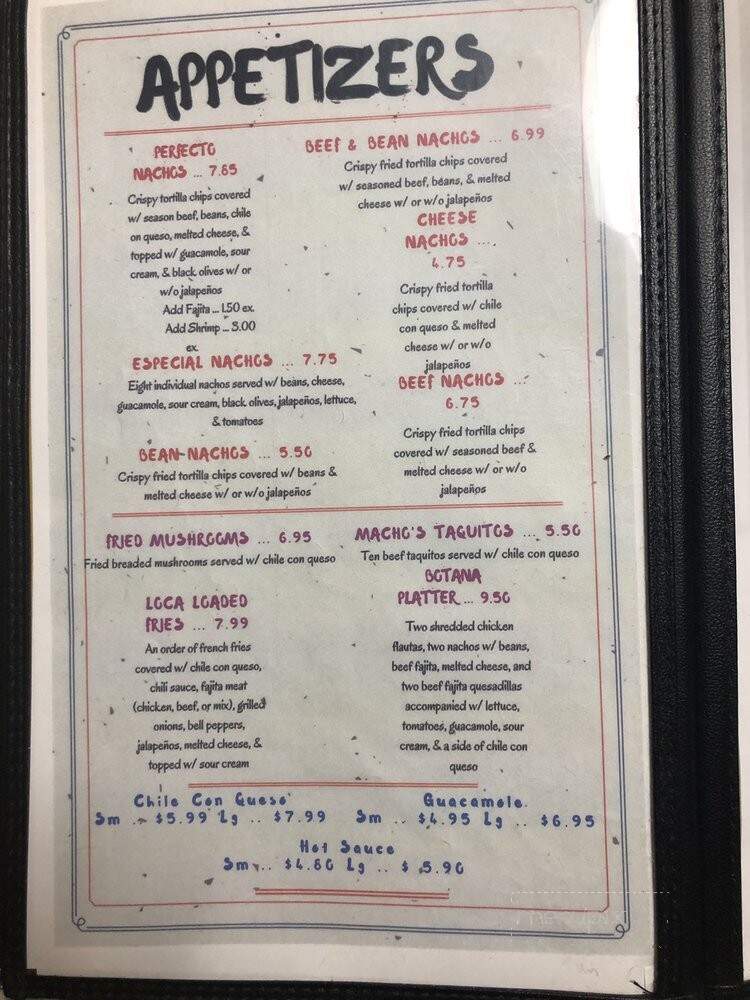 APPETIZERS
PERFECTO
NACHOS ... 7.85
Crispy tortilla chips covered
w/ season beef, beans, chile
on queso, melted cheese, &
topped w/ guacamole, sour
cream, & black olives w/ or
w/o jalapeños
Add Fajita ... 1.50 ex.
Add Shrimp ... 3.00
ex.
ESPECIAL NACHOS ... 7.75
Eight individual nachos served w/ beans, cheese,
guacamole, sour cream, black olives, jalapeños, lettuce,
& tomatoes
BEAN NACHOS ... 5.50
Crispy fried tortilla chips covered w/ beans &
melted cheese w/ or w/o jalapeños
BEEF & BEAN NACHOS ... 6.99
Crispy fried tortilla chips covered
w/ seasoned beef, beans, & melted
cheese w/ or w/o jalapeños
CHEESE
NACHOS ...
4.75
Crispy fried tortilla
chips covered w/ chile
con queso & melted
cheese w/ or w/o
jalapeños
BEEF NACHOS ...
6.75
Crispy fried tortilla chips
covered w/ seasoned beef &
melted cheese w/ or w/o
jalapeños
FRIED MUSHROOMS ... 6.95
Fried breaded mushrooms served w/ chile con queso
LOCA LOADED
FRIES ... 7.99
An order of french fries
covered w/ chile con queso,
chili sauce, fajita meat
(chicken, beef, or mix), grilled
onions, bell peppers,
jalapeños, melted cheese, &
topped w/ sour cream
MACHO'S TAQUITOS ... 5.50
Ten beef taquitos served w/ chile con queso
BOTANA
PLATTER ... 9.50
Two shredded chicken
flautas, two nachos w/ beans,
beef fajita, melted cheese, and
two beef fajita quesadillas
accompanied w/ lettuce,
tomatoes, guacamole, sour
cream, & a side of chile con
queso
Chile Con Queso
Sm .. $5.99 Lg .. $7.99
Guacamole
Sm .. $4.95 Lg .. $6.95
Hot Sauce
Sm .. $4.80 Lg .. $ 5.90